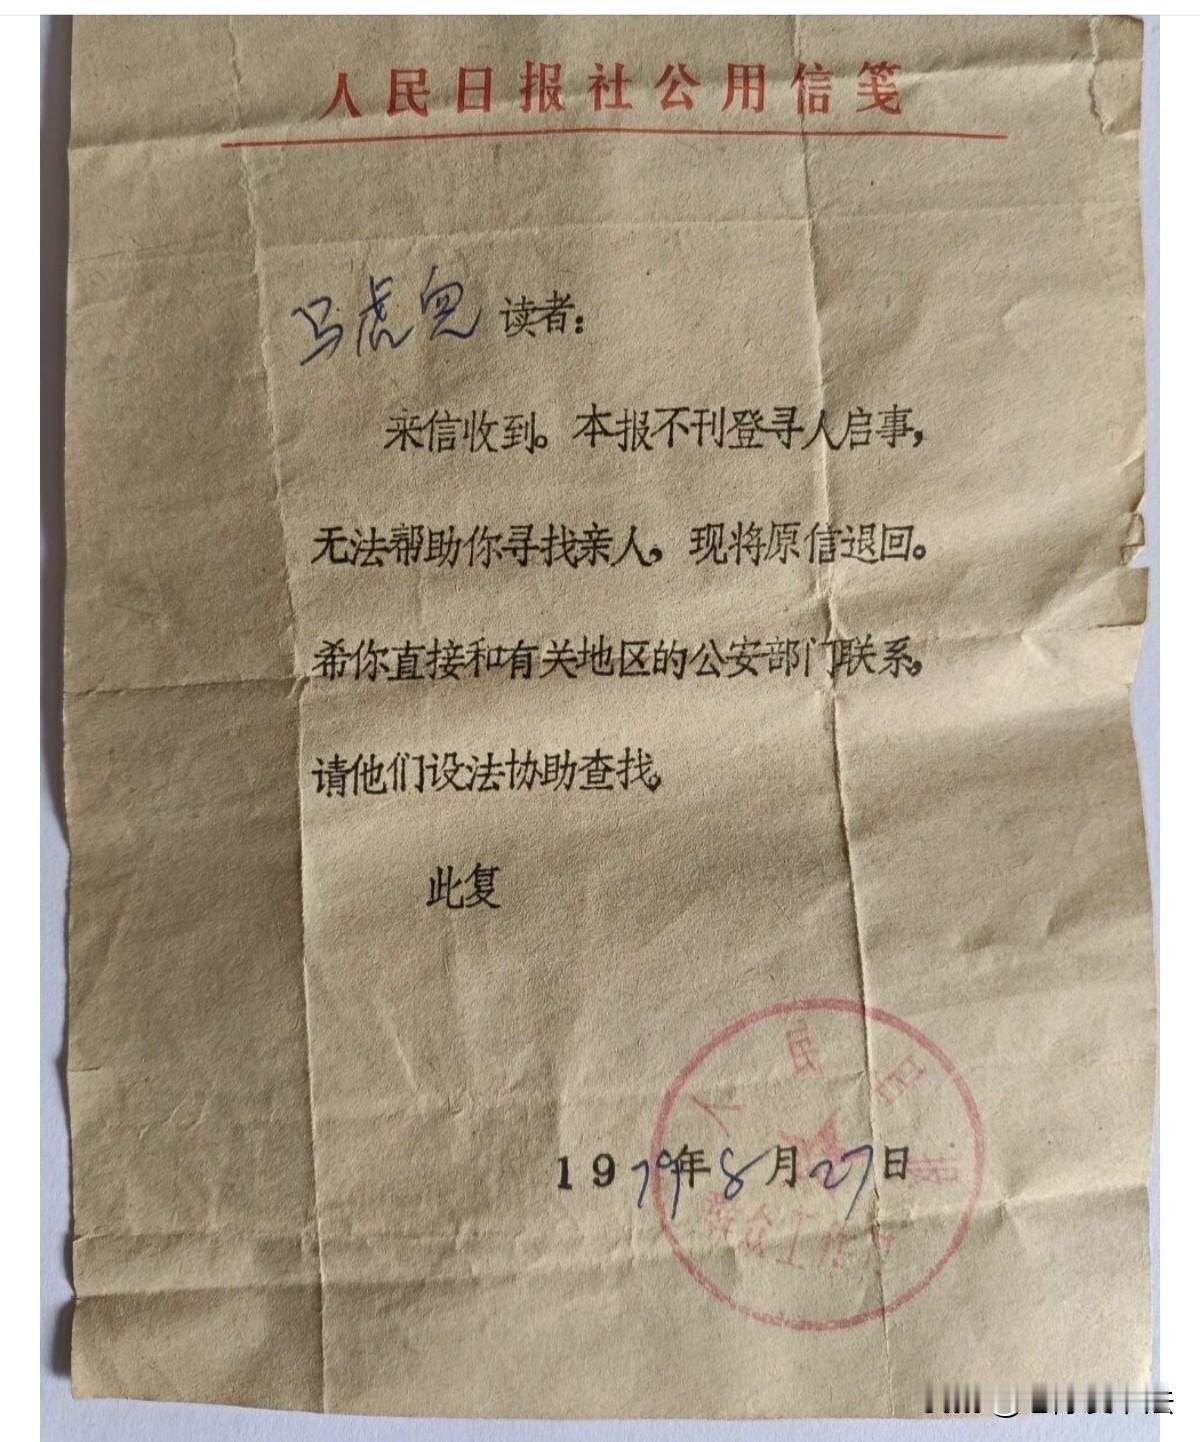 人民日报社公用信笺
马虎兒 读者：
来信收到。本报不刊登寻人启事，
无法帮助你寻找亲人，现将原信退回。
希你直接和有关地区的公安部门联系，
请他们设法协助查找。
此复
人民日报
1979年8月27日
群众工作